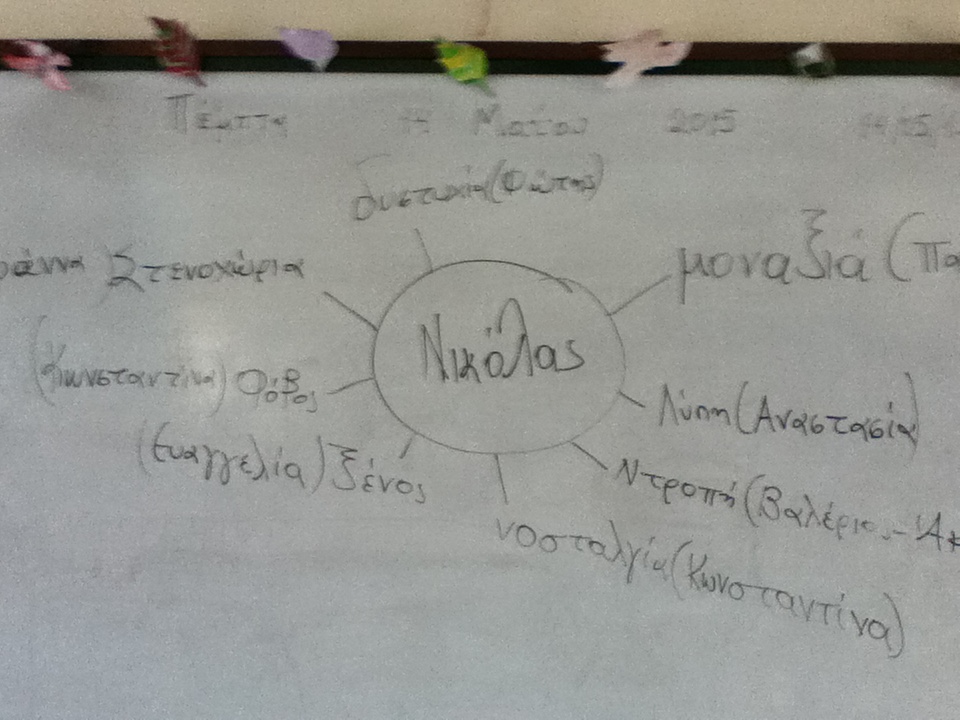 Πέμπτη 14 Μαΐου 2015
δυστυχία (Φώτης)
Στενοχώρια
μοναξιά (Πα
Νικόλας
(Κωνσταντίνα) Φόβος
Λύπη (Αναστασία)
(Ευαγγελία) ξένος
Ντροπή (Βαλέριος-
νοσταλγία (Κωνσταντίνα)